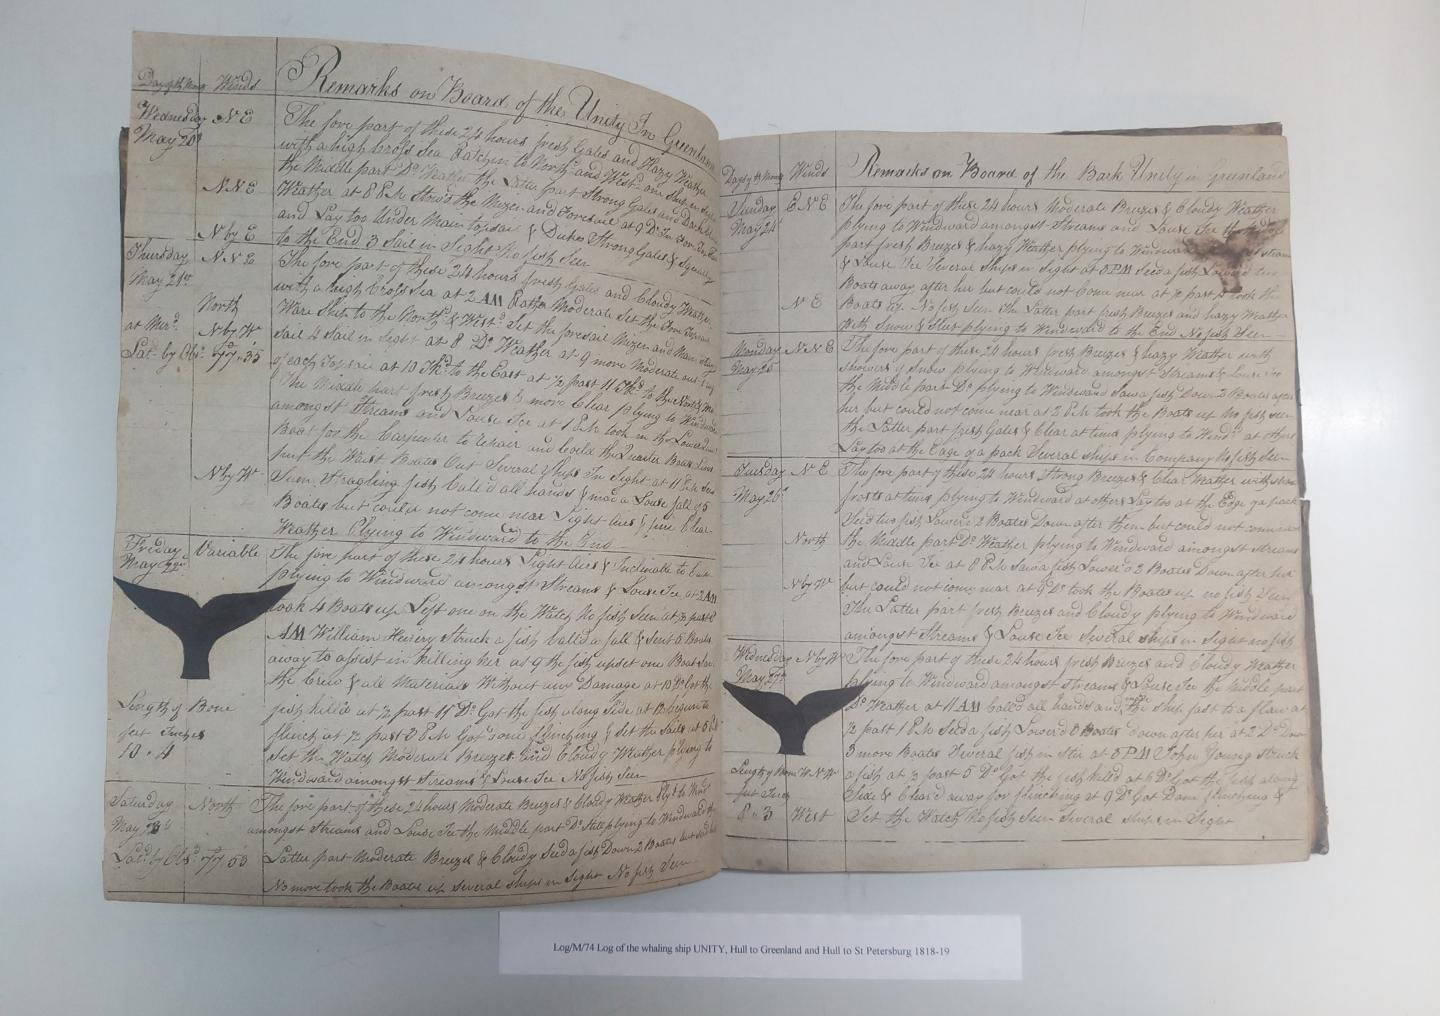 Day of the Month Winds Remarks on Board of the Unity In Greenland
Wednesday May 20th N E The fore part of these 24 hours fresh Gales and Hazy Weather
with a high Cross Sea Ratchin to North and West one Ship in Sight
the Middle part Do Weather the Latter part Strong Gales and Dark
N N E Weather at 8 P.M. Stowd the Mizen and Foresail at 9 Do
and Lay too Under Main topsail & Strong Gales & Squally
N by E to the End 3 Sail in Sight No fish Seen
Thursday N N E The fore part of these 24 hours fresh Gales and Cloudy Weather
May 21st with a high Cross Sea at 2 AM Rather Moderate Set the
North Ware Ship to the Northd & Westd Set the foresail Mizen and Main
at Merd N by W sail 4 Sail in Sight at 8 Do Weather at 9 more Moderate out
Lat by Obs 77,,35 of each Topsail at 10 Tkd to the East at 1/2 past 11 Tkd to the North &
The Middle part fresh Breezes & more Clear plying to Windward
amongst Streams and Louse Ice at 1 P.M. took in the Lower
Boat for the Carpenter to and Coild the Quarter Boats Lines
put the Waist Boats Out Several Ships In Sight at 11 P.M.
N by W Sum Stragling fish Call'd all hands & mad a Louse fall of 5
Boats but could not come near Light Aies & fine Clear
Weather Plying to Windward to the End
Friday Variable The fore part of these 24 hours Light Aies & Inclinable to
May 22nd plying to Windward amongst Streams & Louse Ice at 2 AM
took 4 Boats up Left one on the Watch No fish Seen at 1/2 past
AM William Struck a fish Calld a fall & Sent 5 Boats
away to assist in killing her at 9 the fish upset one Boat
the Crew & all Materials Without any Damage at 10 Do Got the
Length of Bone fish killd at 1/2 past 11 Do Got the fish along Side at 12 begun to
feet Inches flinch at 1/2 past 2 P.M. Got done flinching & Set the Sails at 5
10 ,, 4 Set the Watch Moderate Breezes and Cloudy Weather plying to
Windward amongst Streams & Louse Ice No fish Seen
Saturday North The fore part of these 24 hours Moderate Breezes & Cloudy Weather
May 23d amongst Streams and Louse Ice the Middle part Do Still plying to Windward the
Latd by Obs 77,,53 Latter part Moderate Breezes & Cloudy Seed a fish Down 2 Boats but
No more took the Boats up Several ships in Sight No fish Seen
Days of the Month Winds Remarks on Board of the Bark Unity in Greenland
Sunday E N E The fore part of these 24 hours Moderate Breezes & Cloudy Weather
May 24th plying to Windward amongst Streams and Louse Ice the
part fresh Breezes & hazy Weather plying to Windward
& Louse Ice Several Ships in Sight at 5 PM Seed a fish Lowerd two
Boats away after her but could not Come near at 1/2 past took the
N E Boats up No fish Seen The Latter part fresh Breezes and hazy Weather
With Snow & Sleet plying to Windward to the End No fish Seen
Monday N N E The fore part of these 24 hours fresh Breezes & hazy Weather with
May 25th showers of Snow plying to Windward amongst Streams & Louse Ice
the Middle part Do plying to Windward Saw a fish Down 2 Boats after
her but could not come near at 2 P.M. took the Boats up No fish Seen
the Latter part fresh Gales & Clear at times plying to Windd at others
Lay too at the Eage of a pack Several ships in Company No fish Seen
Tuesday N E The fore part of these 24 hours Strong Breezes & Clear Weather with
May 26th frosts at times plying to Windward at others Lay too at the Edge of a pack
Seed two fish Lowerd 2 Boats Down after them but could not come near
North the Middle part Do Weather plying to Windward amongst Streams
and Louse Ice at 8 P.M. Saw a fish Lowerd 2 Boats Down after her
N by W but could not come near at 9 Do took the Boats up no fish Seen
The Latter part fresh Breezes and Cloudy plying to Windward
amongst Streams & Louse Ice Several ships in Sight no fish
Wednesday N by W The fore part of these 24 hours fresh Breezes and Cloudy Weather
May 27th plying to Windward amongst Streams & Louse Ice the Middle part
Do Weather at 11 AM Calld all hands and the ship fast to a flaw at
1/2 past 1 P.M. Seed a fish Lowerd 8 Boats down after her at 2 Do Down
3 more Boats Several fish in Stir at 5 PM John Young Struck
Length of Bone W N W a fish at 3 past 5 Do Got the fish killed at 6 Do Got the fish along
feet Inches Side & Cleard away for flinching at 9 Do Got Done flinching &
8 ,, 3 West Set the Watch No fish Seen Several ships in Sight
Log/M/74 Log of the whaling ship UNITY, Hull to Greenland and Hull to St Petersburg 1818-19